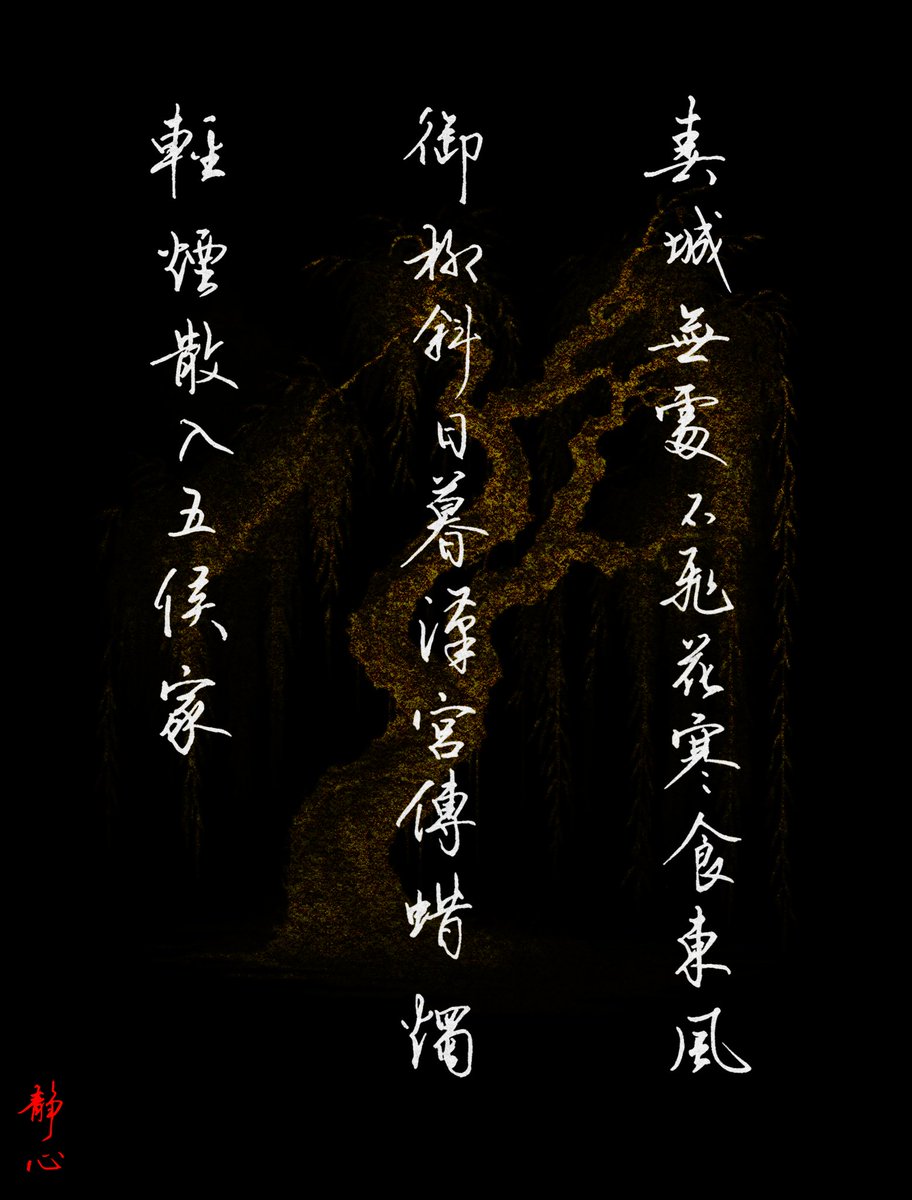 春城無處不飛花寒食東風
御柳斜日暮漢宮傳蜡燭
輕煙散入五侯家
靜心